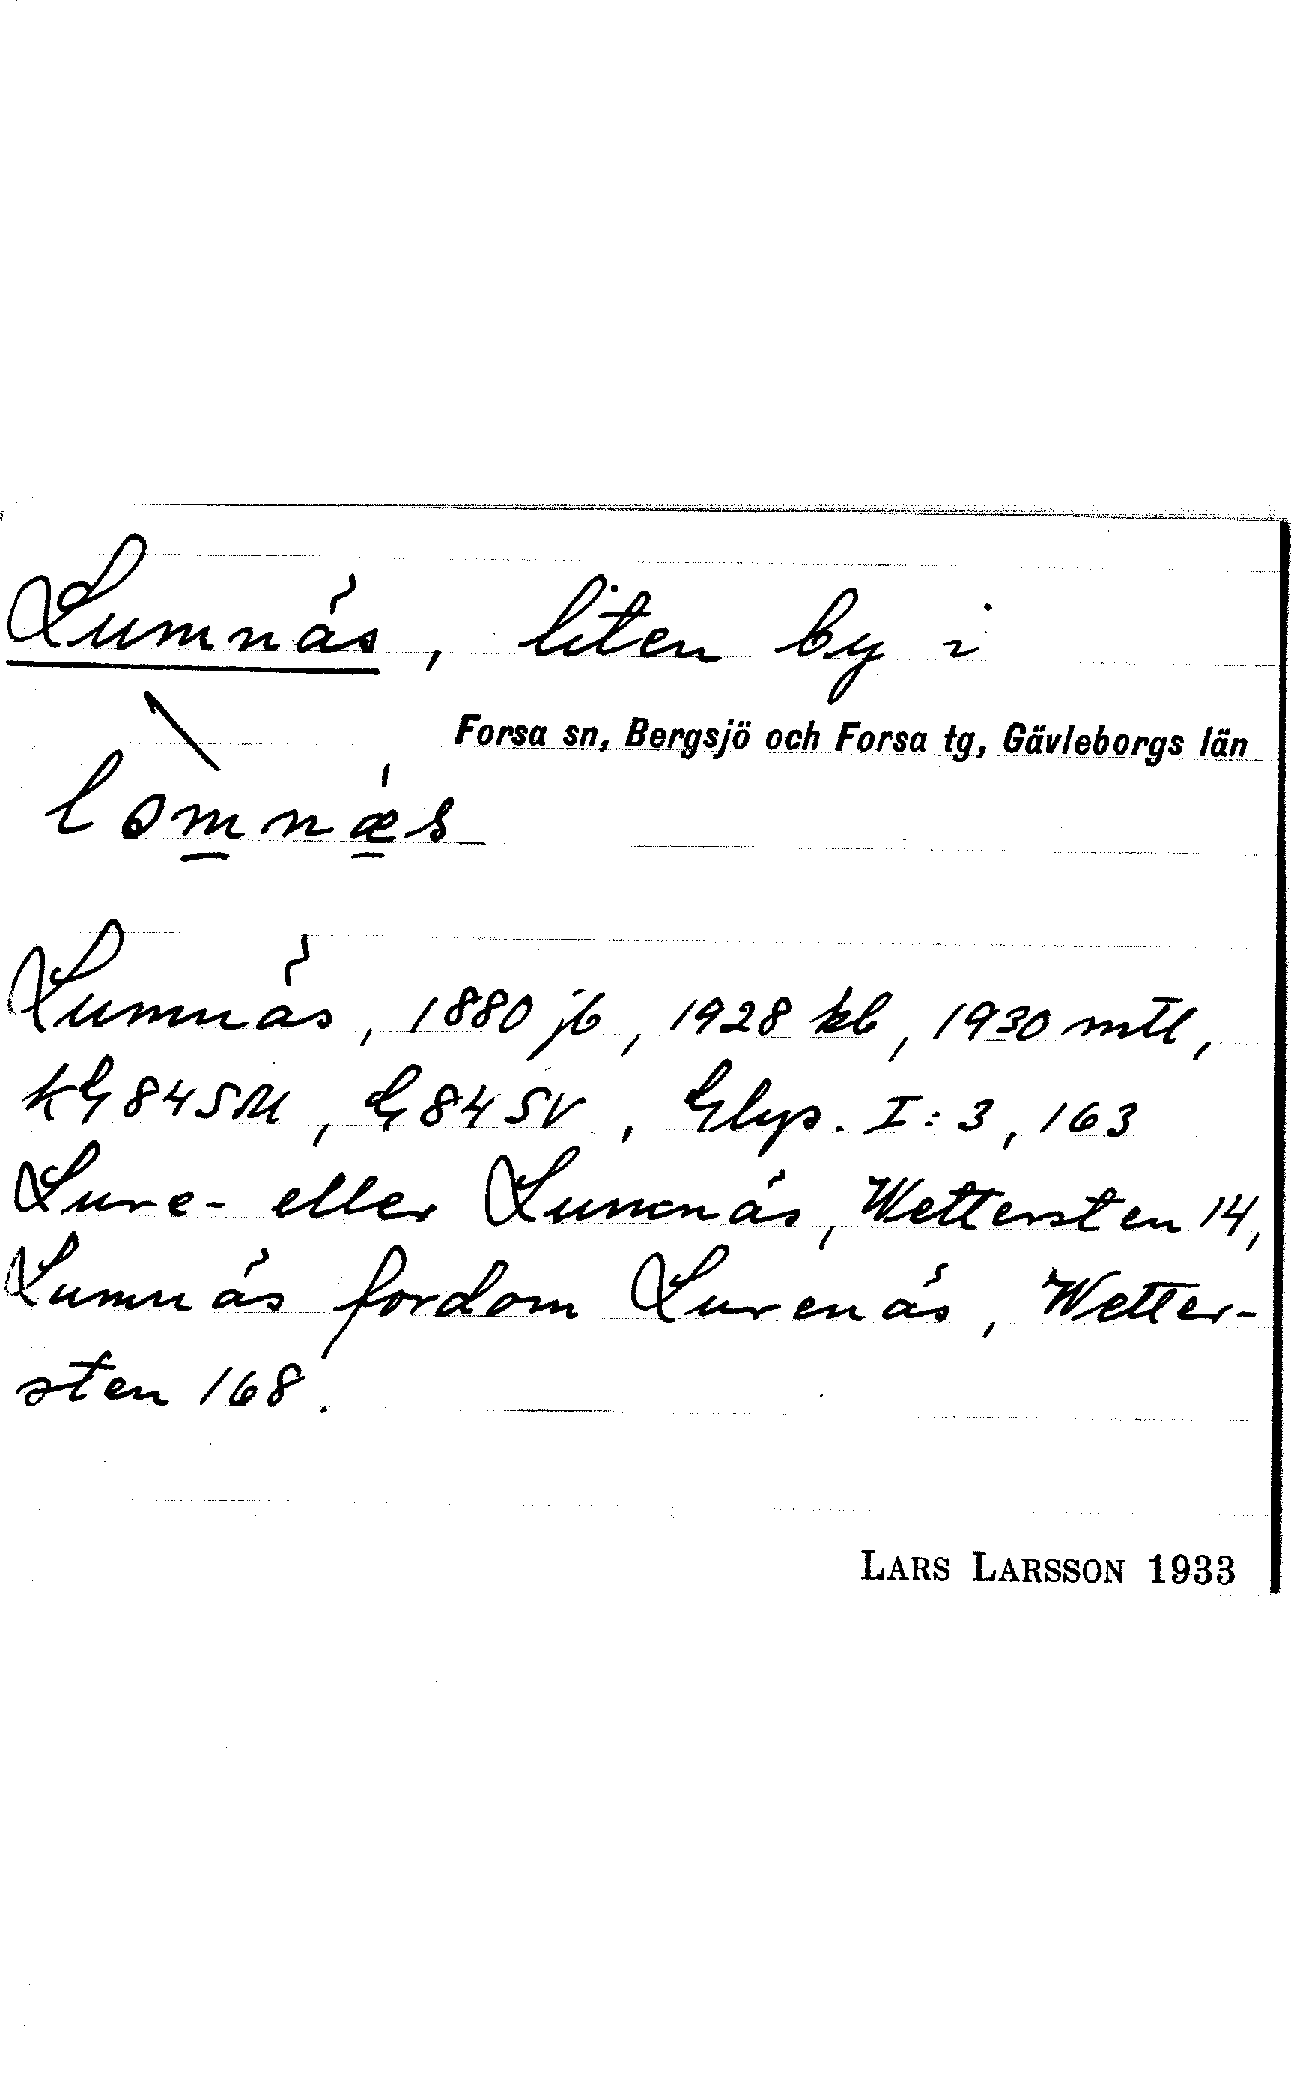 Lumnäs, liten by i
Forsa sn, Bergsjö och Forsa tg, Gävleborgs län
lomnæs
Lumnäs, 1880 jb, 1928 kb, 1930 mtl,
KG 84 SM, G 84 SV, Glys. I:3, 163
Lure- eller Lumnäs, Wettersten 14,
Lumnäs fordom Lurenäs, Wetter-
sten 168.
LARS LARSSON 1933